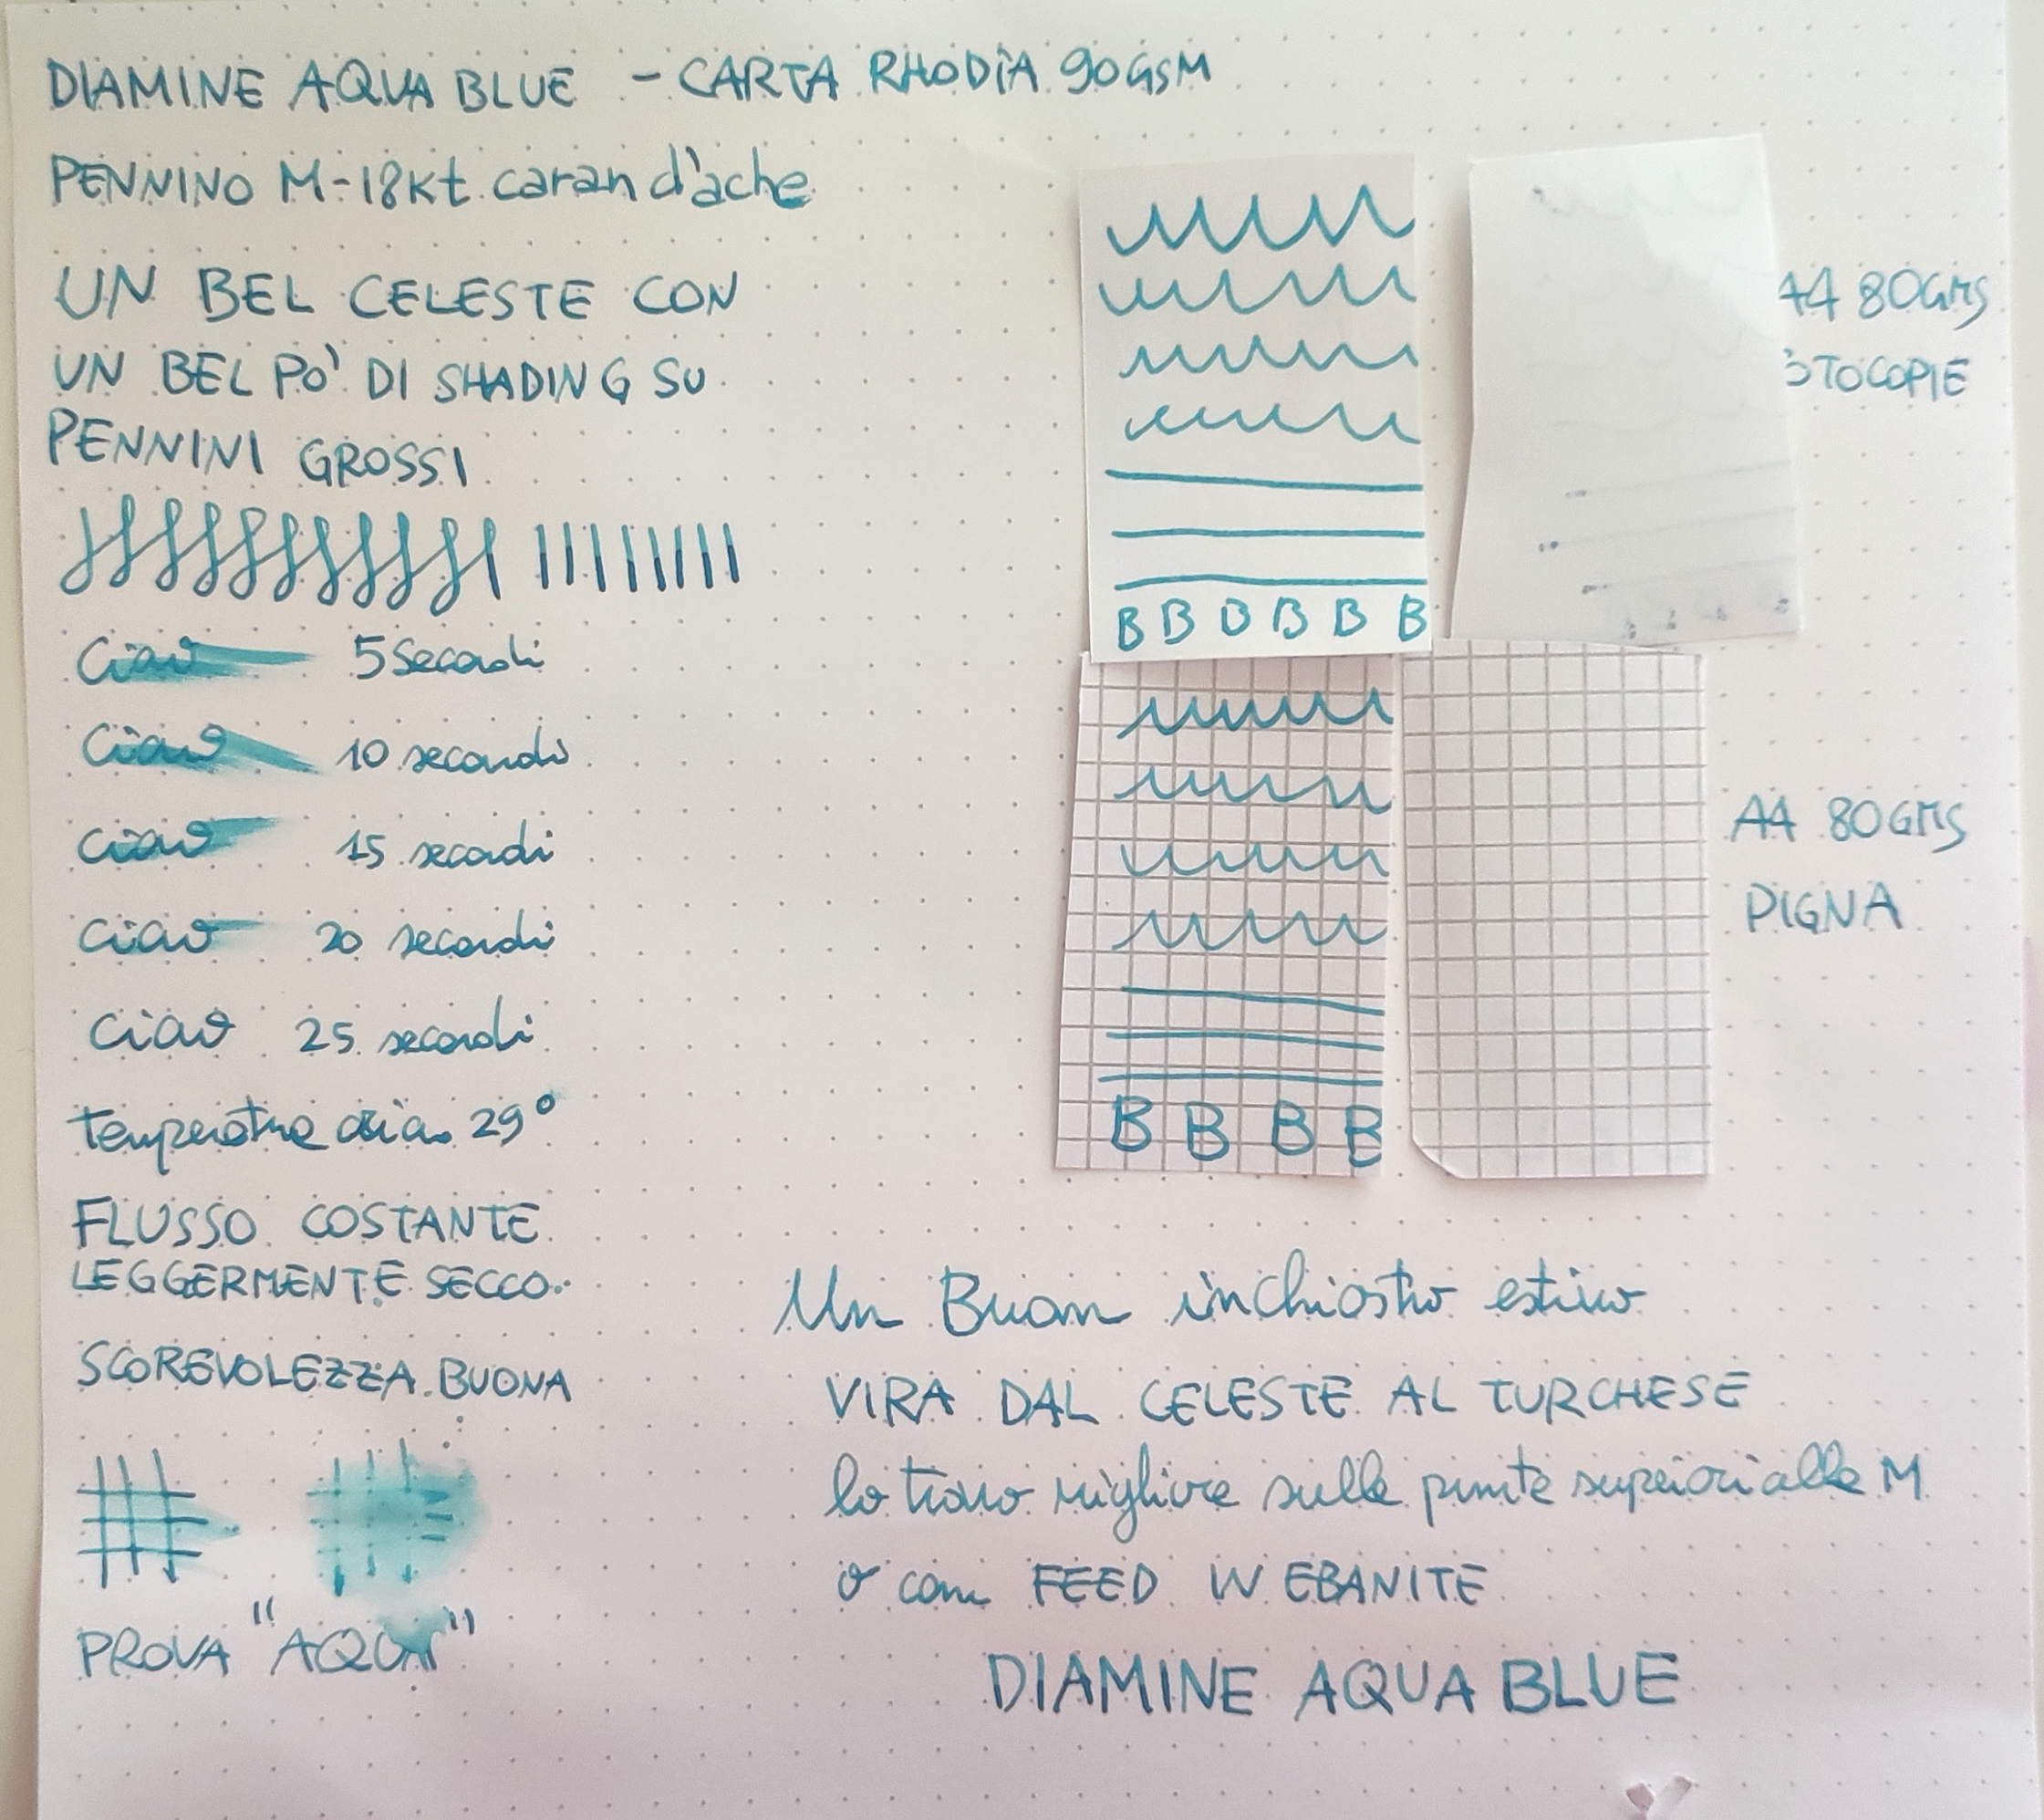 DIAMINE AQUA BLUE - CARTA RHODIA 90GSM
PENNINO M-18Kt caran d'ache
UN BEL CELESTE CON
UN BEL PO' DI SHADING SU
PENNINI GROSSI
Ciao 5 Secondi
Ciao 10 secondi
Ciao 15 secondi
Ciao 20 secondi
Ciao 25 secondi
Temperatura aria 29°
FLUSSO COSTANTE
LEGGERMENTE SECCO
SCOREVOLEZZA BUONA
PROVA "AQUA"
B B B B B B
A4 80GMS
OTOCOPIE
B B B B
A4 80GMS
PIGNA
Un Buon inchiostro estivo
VIRA DAL CELESTE AL TURCHESE
lo trovo migliore sulle punte superiori alle M
o con FEED IN EBANITE
DIAMINE AQUA BLUE